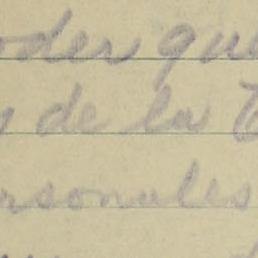 oder que
y de la
rsonales